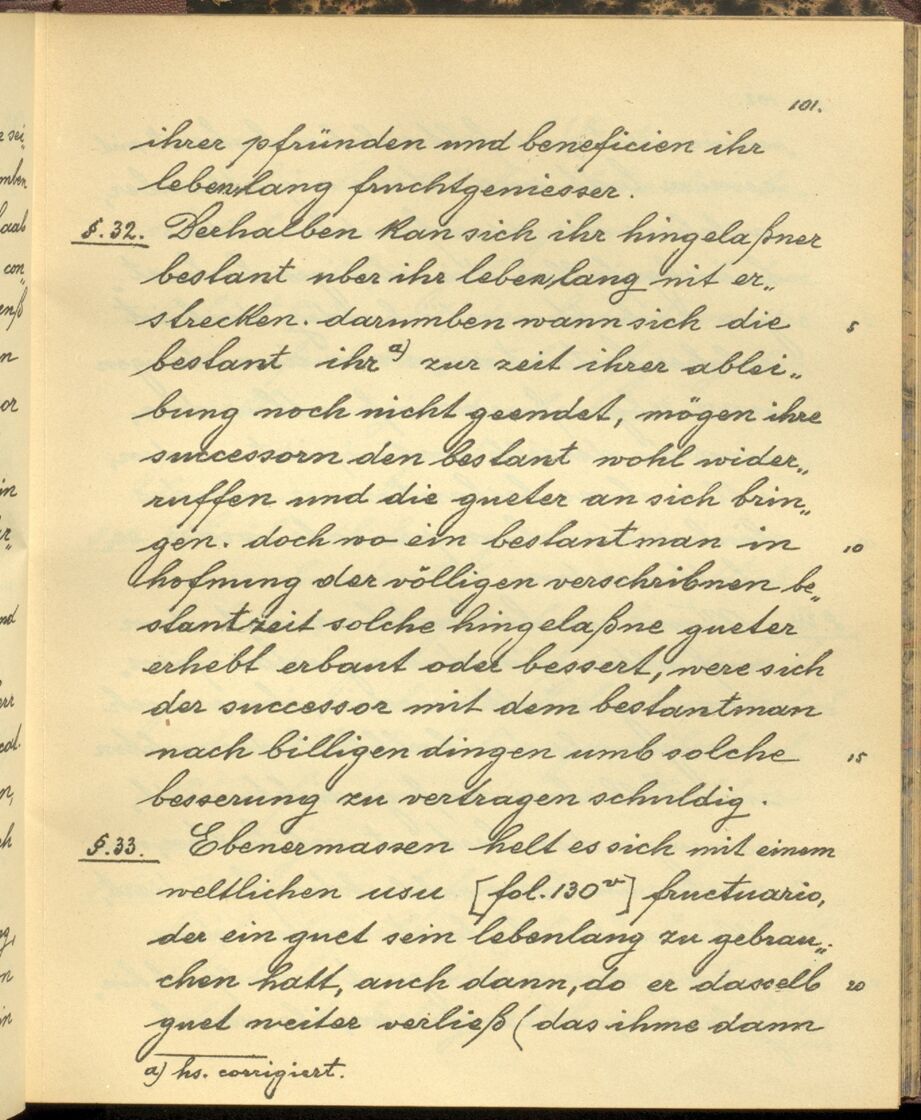 101.
ihrer pfründen und beneficien ihr
lebenlang fruchtgeniesser.
§.32. Derhalben kan sich ihr hingelaßner
bestant uber ihr lebenlang nit er„
strecken. darumben wann sich die
5
bestant ihr a) zur zeit ihrer ablei„
bung noch nicht geendet, mögen ihre
successorn den bestant wohl wider„
ruffen und die gueter an sich brin„
gen. doch wo ein bestantman in
10
hofnung der völligen verschribnen be„
stantzeit solche hingelaßne gueter
erhebt erbaut oder bessert, were sich
der successor mit dem bestantman
nach billigen dingen umb solche
15
besserung zu vertragen schuldig.
§.33. Ebenermassen helt es sich mit einem
weltlichen usu [fol. 130v] fructuario,
der ein guet sein lebenlang zu gebrau„
chen hatt, auch dann, do er dasselb
20
guet weiter verließ (das ihme dann
a) hs. corrigiert.